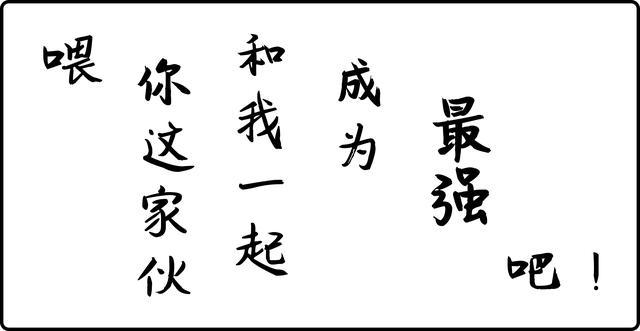 喂
你这家伙
和我一起
成为
最强
吧！